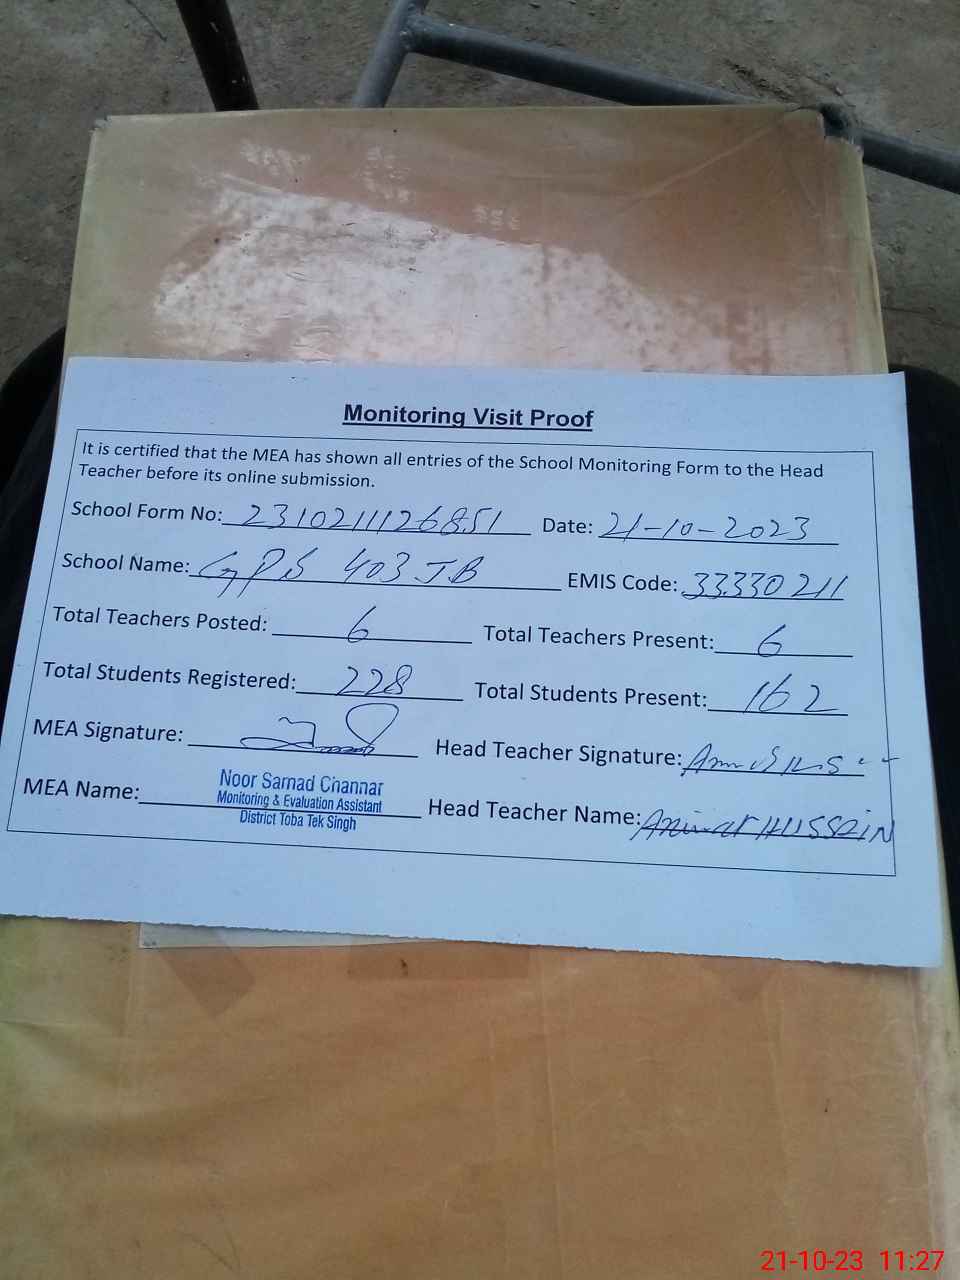 Monitoring Visit Proof
It is certified that the MEA has shown all entries of the School Monitoring Form to the Head
Teacher before its online submission.
School Form No: 2310211126851 Date: 21-10-2023
School Name: GPS 403 JB EMIS Code: 33330211
Total Teachers Posted: 6 Total Teachers Present: 6
Total Students Registered: 228 Total Students Present: 162
MEA Signature: Head Teacher Signature:
MEA Name: Noor Samad Channar Head Teacher Name: HUSSAIN
Monitoring & Evaluation Assistant
District Toba Tek Singh
21-10-23 11:27